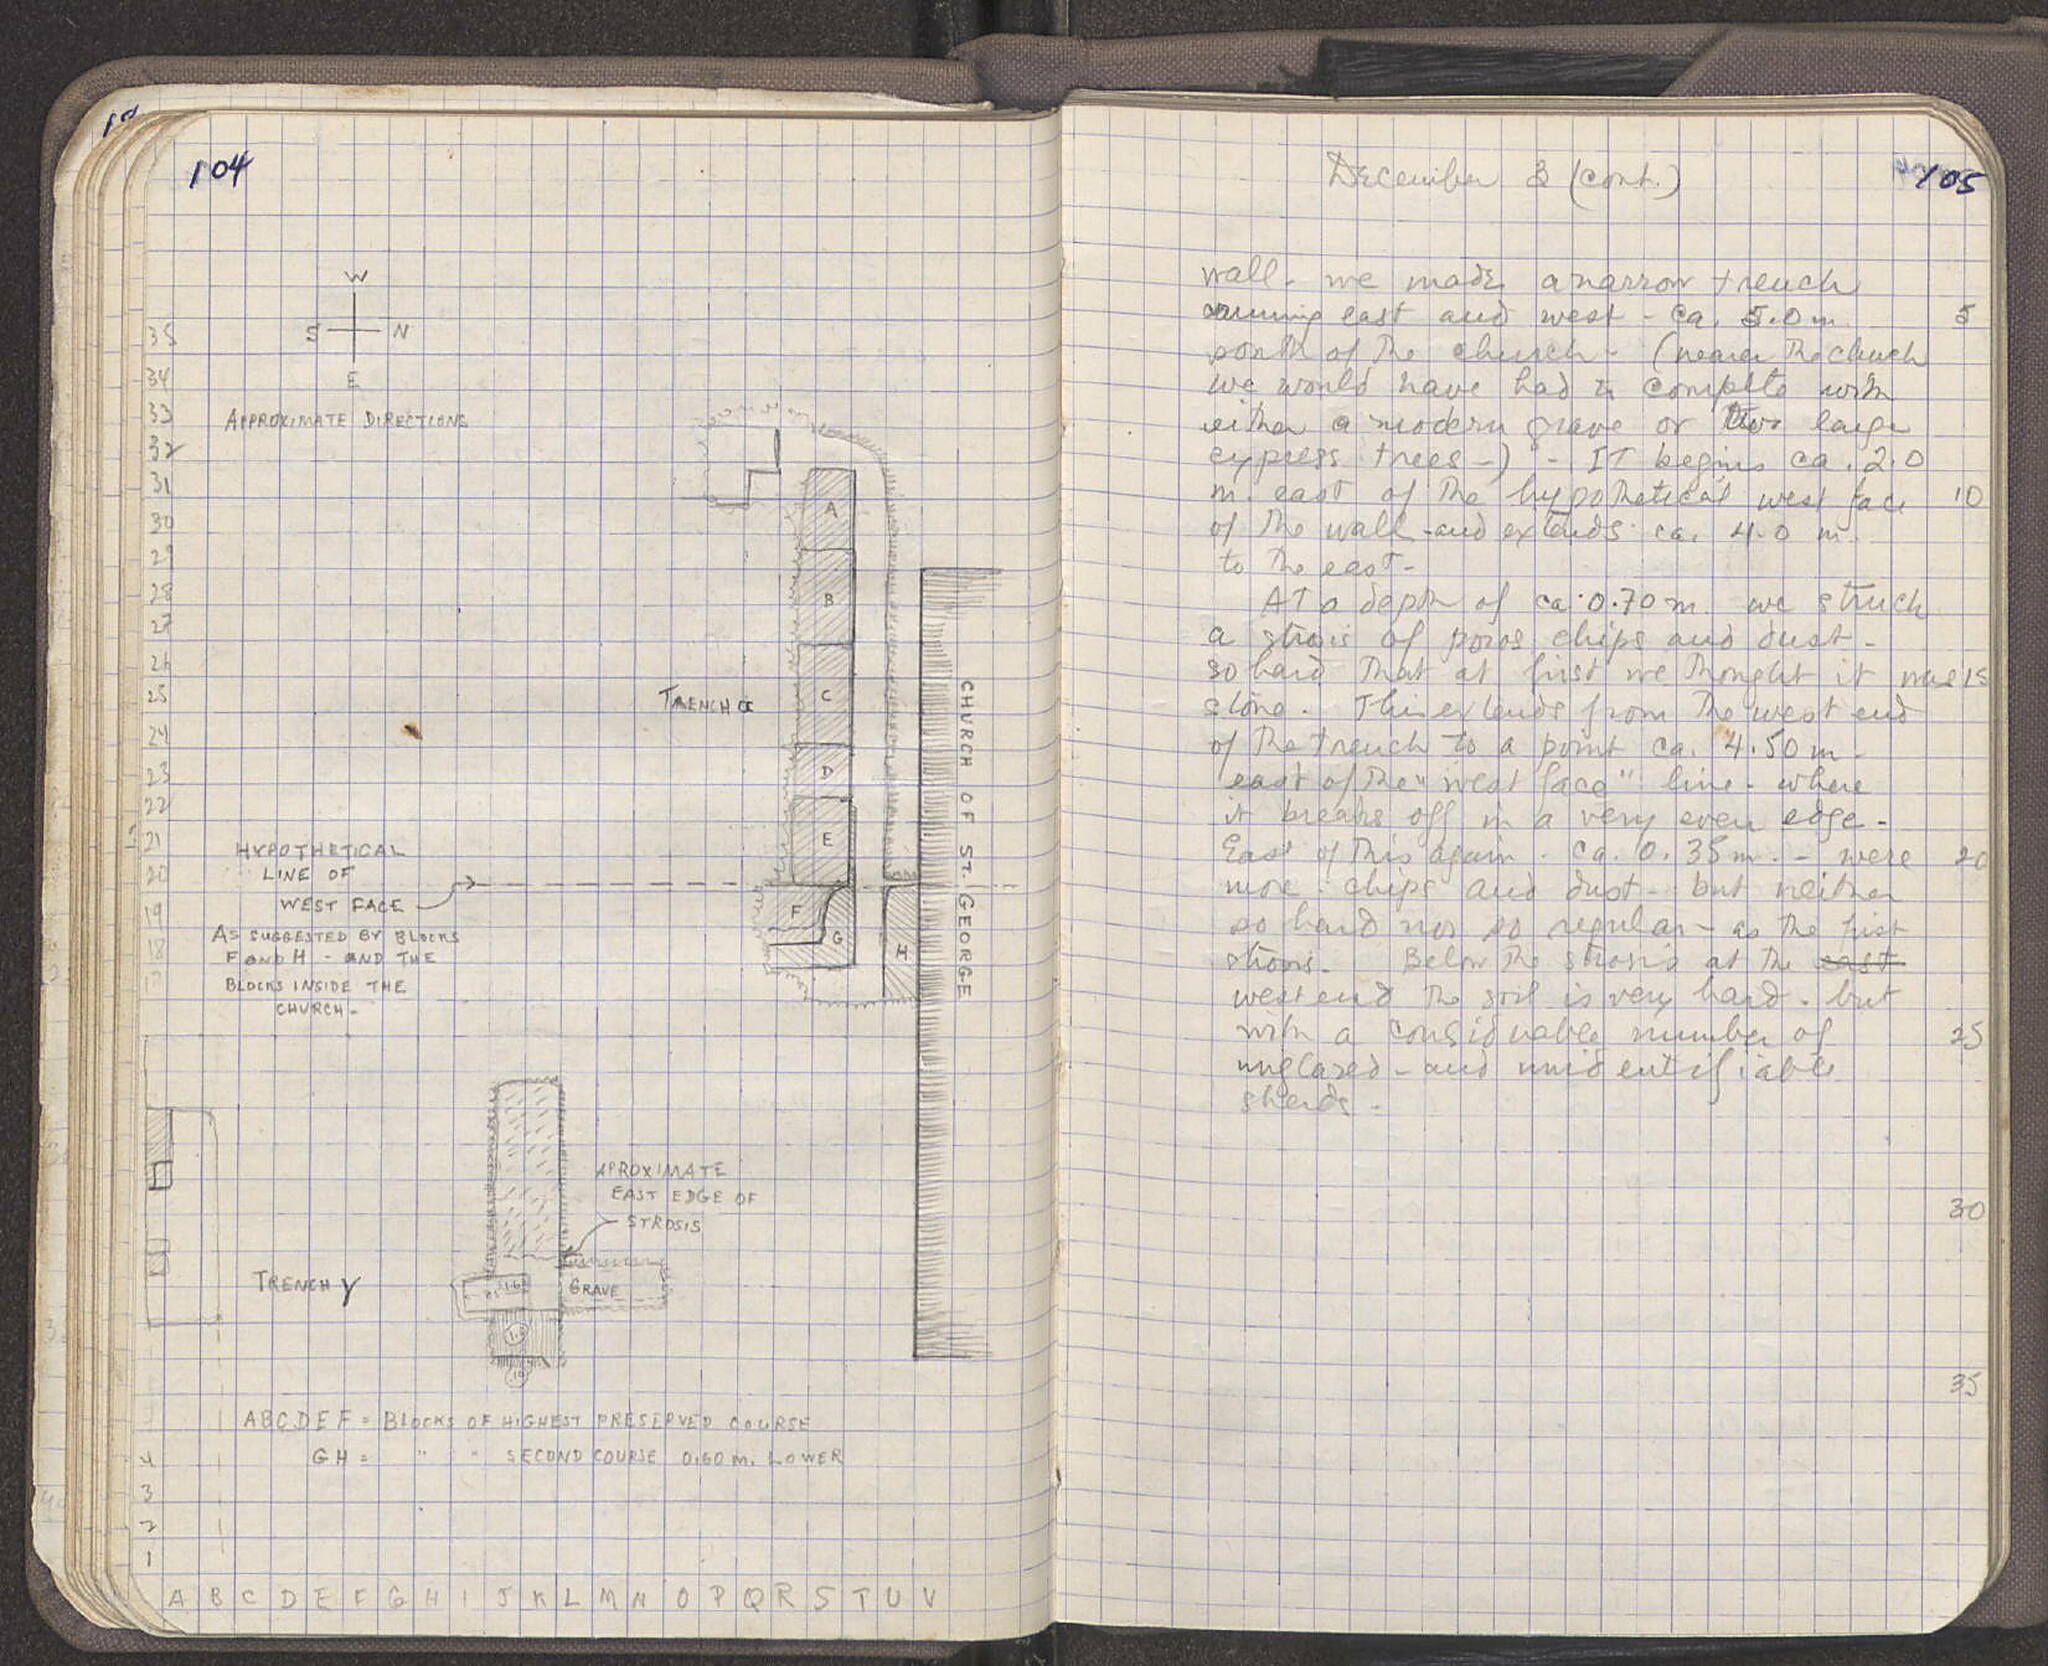 104
W
S N
E
APPROXIMATE DIRECTIONS
35
34
33
32
31
30
29
28
27
26
25
24
23
22
21
20
19
18
17
A
B
C
D
E
F
G
H
TRENCH α
CHURCH OF ST. GEORGE
HYPOTHETICAL
LINE OF
WEST FACE
AS SUGGESTED BY BLOCKS
F AND H - AND THE
BLOCKS INSIDE THE
CHURCH -
APROXIMATE
EAST EDGE OF
STROSIS
TRENCH γ
GRAVE
ABCDEF = BLOCKS OF HIGHEST PRESERVED COURSE
GH = " " SECOND COURSE 0.60 M. LOWER
4
3
2
1
A B C D E F G H I J K L M N O P Q R S T U V
105
December 3 (cont.)
wall - we made a narrow trench
running east and west - ca. 5.0 m 5
south of the church - (nearer the church
we would have had to complete with
either a modern grave or two large
cypress trees -) - IT begins ca. 2.0
m. east of the hypothetical west face 10
of the wall - and extends ca. 4.0 m.
to the east -
AT a depth of ca. 0.70 m. we struck
a strosis of poros chips and dust -
so hard that at first we thought it was 15
stone. This extends from the west end
of the trench to a point ca. 4.50 m -
east of the "west face" line - where
it breaks off in a very even edge -
East of this again - ca. 0.35 m. - were 20
more chips and dust - but neither
so hard nor so regular - as the first
strosis. Below the strosis at the east
west end the soil is very hard - but
with a considerable number of 25
unglazed - and unidentifiable
sherds -
30
35